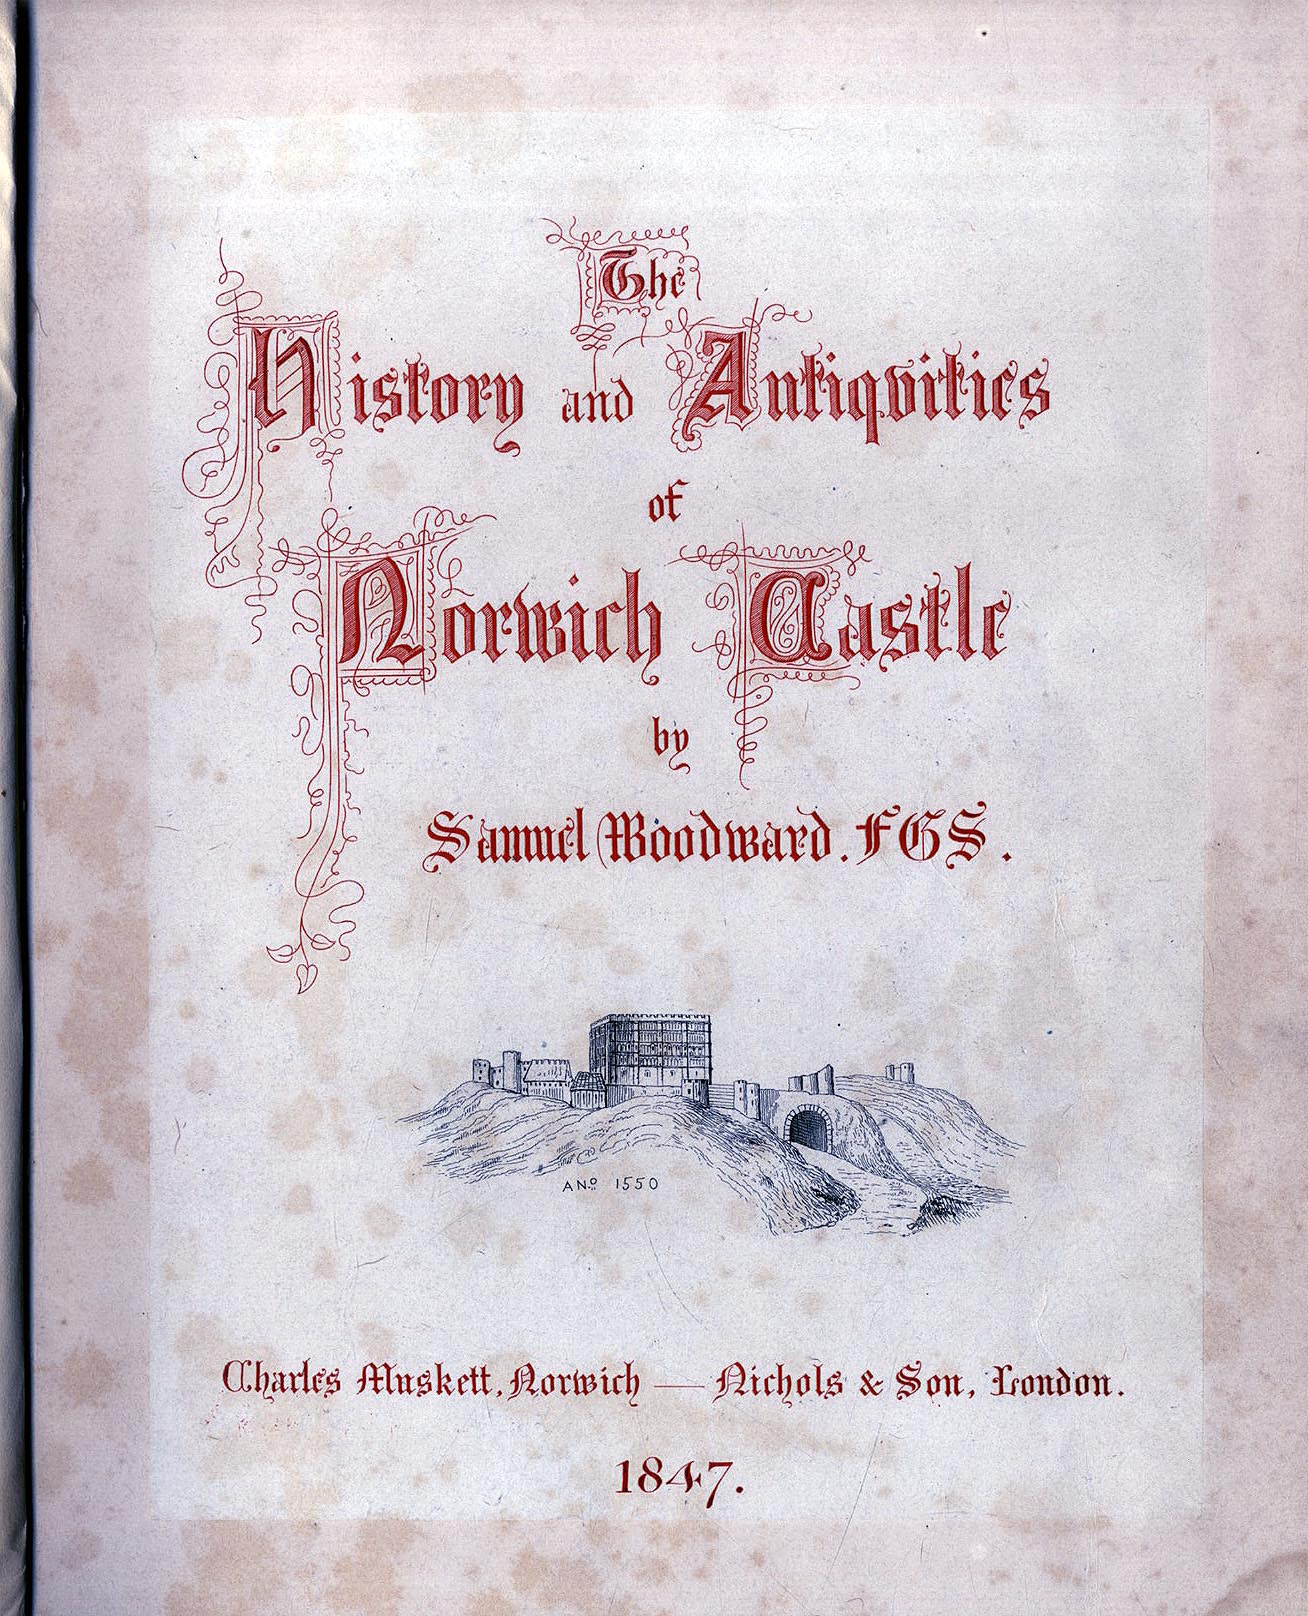 The
History and Antiqvities
of
Norwich Castle
by
Samuel Woodward. FGS.
ANº 1550
Charles Muskett, Norwich — Nichols & Son, London.
1847.